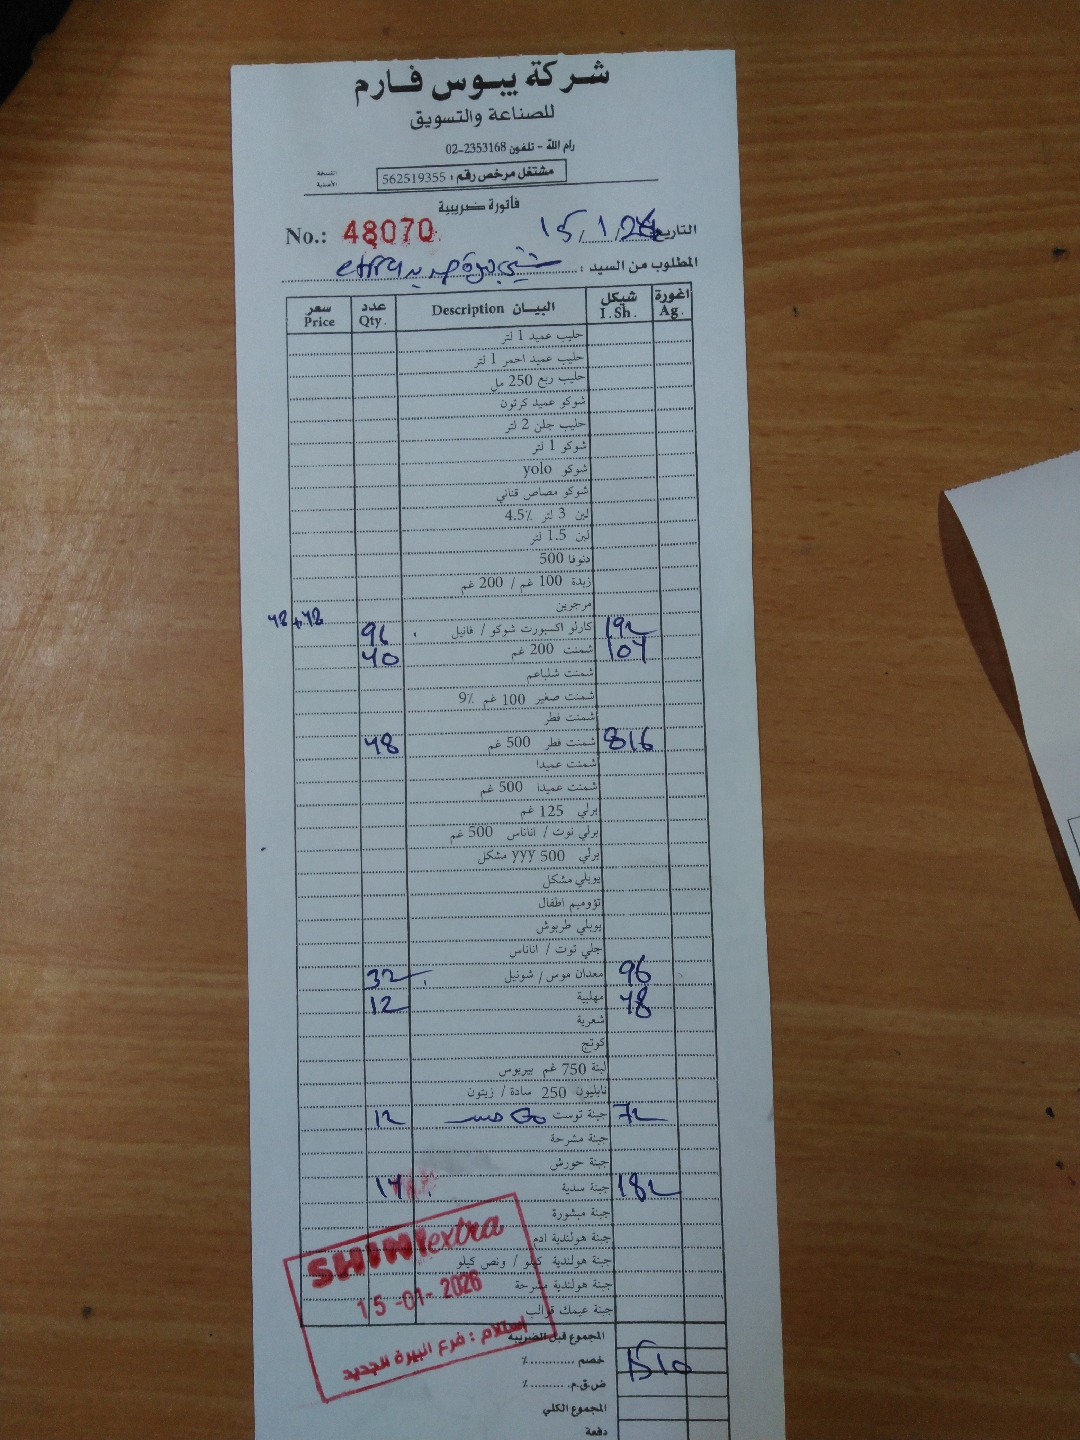 شركة يبوس فارم
للصناعة والتسويق
رام الله - تلفون 02-2353168
مشتغل مرخص رقم : 562519355
النسخة الأصلية
فاتورة ضريبية
No.: 48070
التاريخ 15/1/26
المطلوب من السيد :
سعر Price عدد Qty. البيــان Description شيكل I.Sh. اغورة Ag.
حليب عميد 1 لتر
حليب عميد احمر 1 لتر
حليب ربع 250 مل
شوكو عميد كرتون
حليب جلن 2 لتر
شوكو 1 لتر
شوكو yolo
شوكو مصاص قناني
لبن 3 لتر 4.5٪
لبن 1.5 لتر
دنوفا 500
زبدة 100 غم / 200 غم
مرجرين
48+48 96 كارلو اكسبورت شوكو / فانيل 192
40 شمنت 200 غم 104
شمنت شلباعم
شمنت صغير 100 غم 9٪
شمنت فطر
48 شمنت فطر 500 غم 816
شمنت عميدا
شمنت عميدا 500 غم
برلي 125 غم
برلي توت / اناناس 500 غم
برلي 500 yyy مشكل
يوبلي مشكل
تؤوميم اطفال
يوبلي طربوش
جلي توت / اناناس
32 معدان موس / شونيل 96
12 مهلبية 48
شعرية
كوتج
لبنة 750 غم بيربوس
نابليون 250 سادة / زيتون
12 جبنة توست 72
جبنة مشرحة
جبنة حورش
14 جبنة سدية 182
جبنة مبشورة
جبنة هولندية ادم
جبنة هولندية كيلو / ونص كيلو
جبنة هولندية مشرحة
جبنة عيمك قوالب
SHINI extra
15-01-2026
إستلام : فرع البيرة الجديد
المجموع قبل الضريبه
خصم ............ ٪ 1510
ض.ق.م. .......... ٪
المجموع الكلي
دفعة